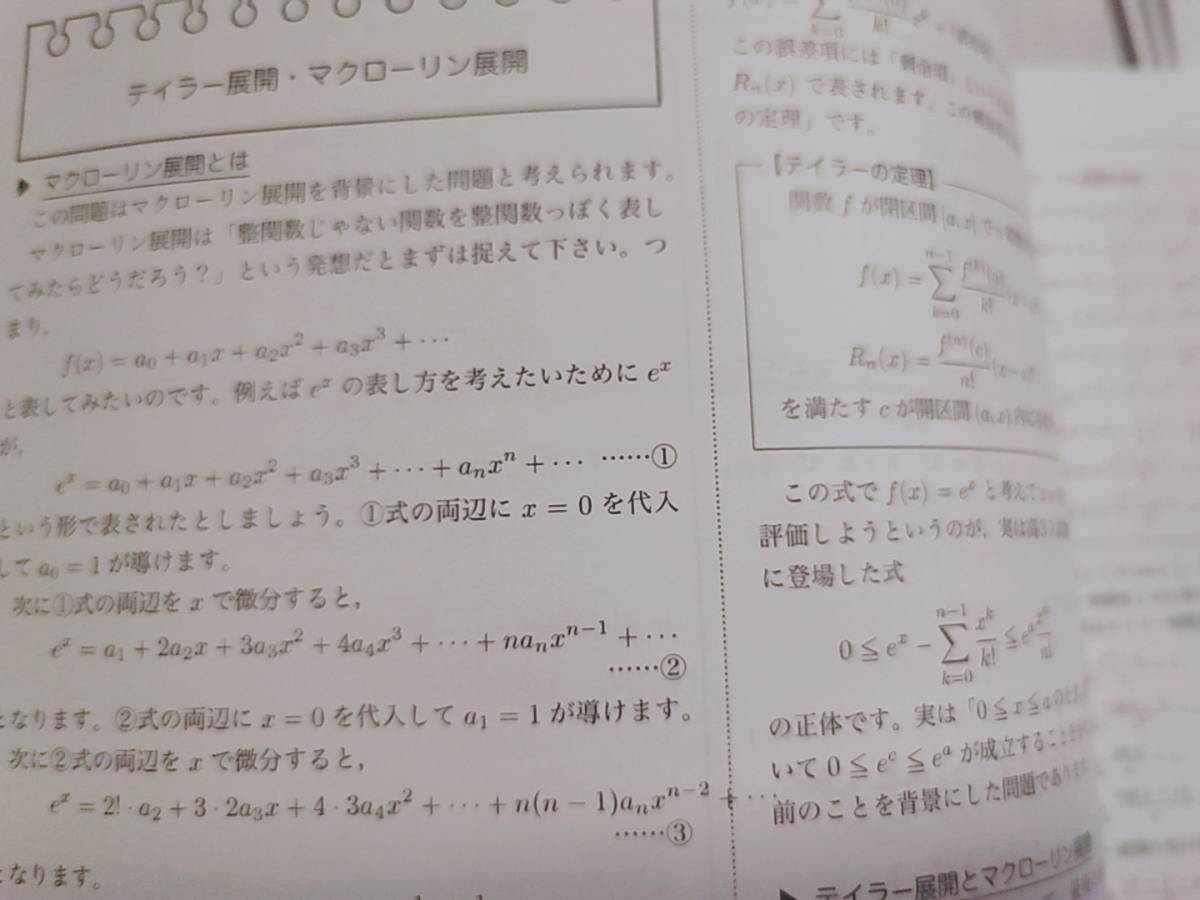 テイラー展開・マクローリン展開
▶ マクローリン展開とは
この問題はマクローリン展開を背景にした問題と考えられます。
マクローリン展開は「整関数じゃない関数を整関数っぽく表し
てみたらどうだろう？」という発想だとまずは捉えて下さい。つ
まり，
f(x) = a₀ + a₁x + a₂x² + a₃x³ + ⋯
と表してみたいのです。例えば eˣ の表し方を考えたいために eˣ
が，
eˣ = a₀ + a₁x + a₂x² + a₃x³ + ⋯ + aₙxⁿ + ⋯ ……①
という形で表されたとしましょう。①式の両辺に x = 0 を代入
して a₀ = 1 が導けます。
次に①式の両辺を x で微分すると，
eˣ = a₁ + 2a₂x + 3a₃x² + 4a₄x³ + ⋯ + naₙxⁿ⁻¹ + ⋯
……②
となります。②式の両辺に x = 0 を代入して a₁ = 1 が導けます。
次に②式の両辺を x で微分すると，
eˣ = 2!・a₂ + 3・2a₃x + 4・3a₄x² + ⋯ + n(n − 1)aₙxⁿ⁻² + ⋯
……③
となります。
この誤差項には「剰余項」
Rₙ(x) で表されます。この
の定理」です。
【テイラーの定理】
関数 f が閉区間 [a, x] で
f(x) = Σ_{k=0}^{n−1} f⁽ᵏ⁾(a)/k! (x −
Rₙ(x) = f⁽ⁿ⁾(c)/n! (x −
を満たす c が開区間 (a, x) 内に
この式で f(x) = eˣ と考えて
評価しようというのが，実は
に登場した式
0 ≦ eˣ − Σ_{k=0}^{n−1} xᵏ/k! ≦ eᵃ xⁿ/n!
の正体です。実は「0 ≦ x ≦ a のとき
いて 0 ≦ eᶜ ≦ eᵃ が成立すること
前のことを背景にした問題であり
▶ テイラー展開とマクローリン展開